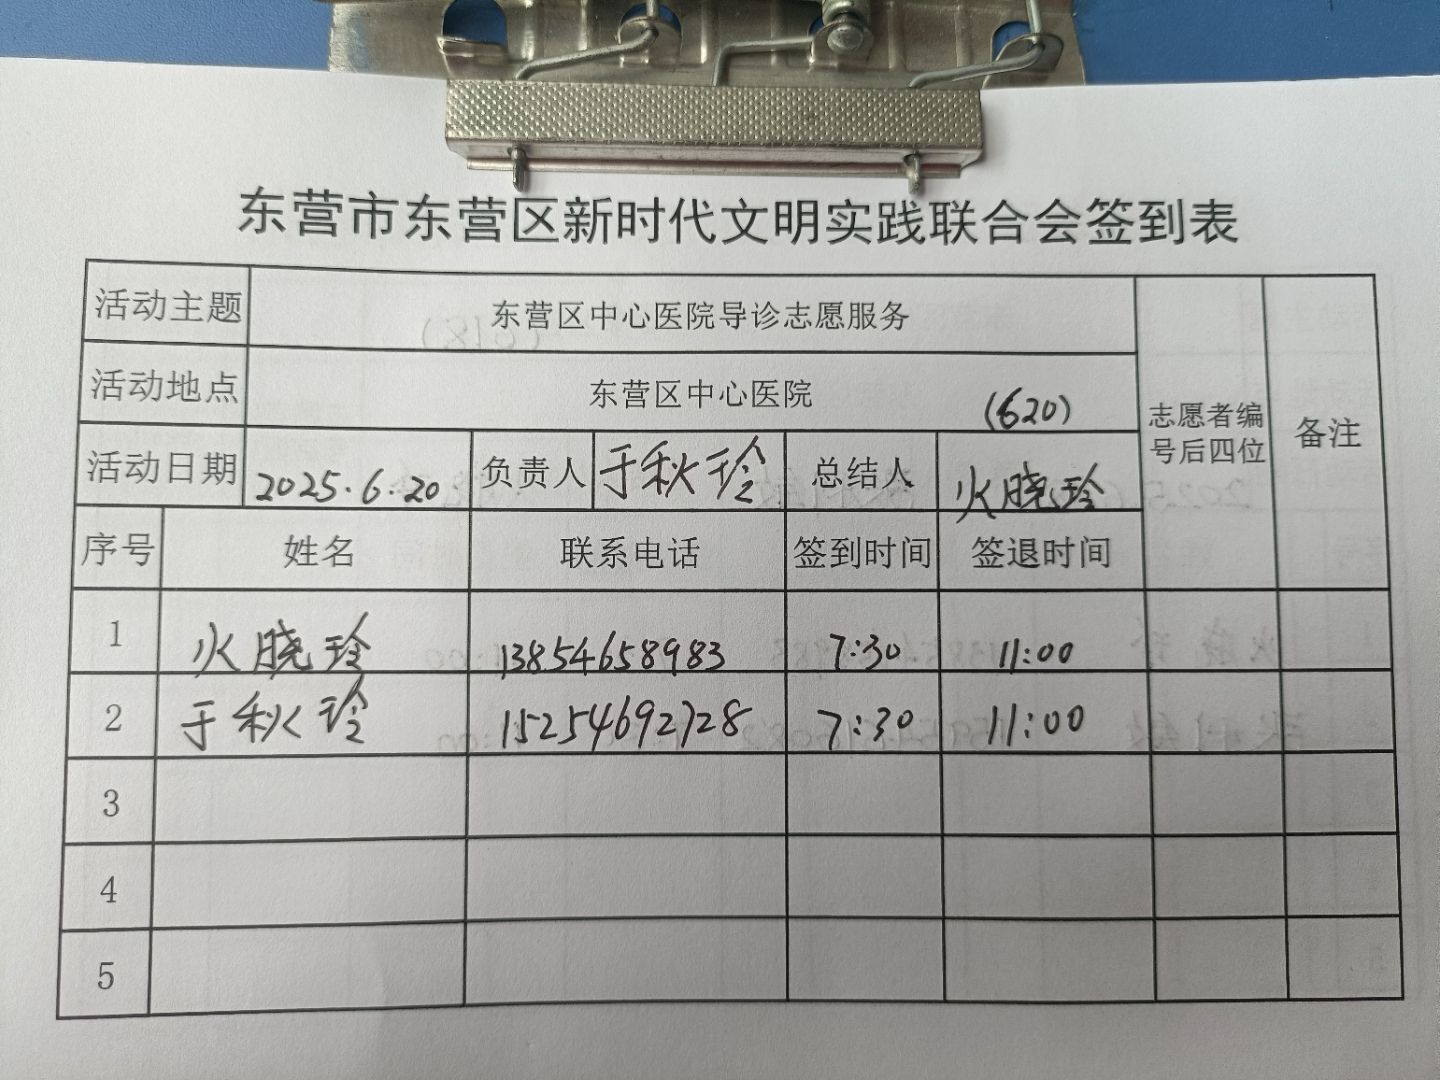 东营市东营区新时代文明实践联合会签到表
活动主题 东营区中心医院导诊志愿服务
活动地点 东营区中心医院 (620)
志愿者编号后四位 备注
活动日期 2025.6.20 负责人 于秋玲 总结人 火晓玲
序号 姓名 联系电话 签到时间 签退时间
1 火晓玲 13854658983 7:30 11:00
2 于秋玲 15254692728 7:30 11:00
3
4
5